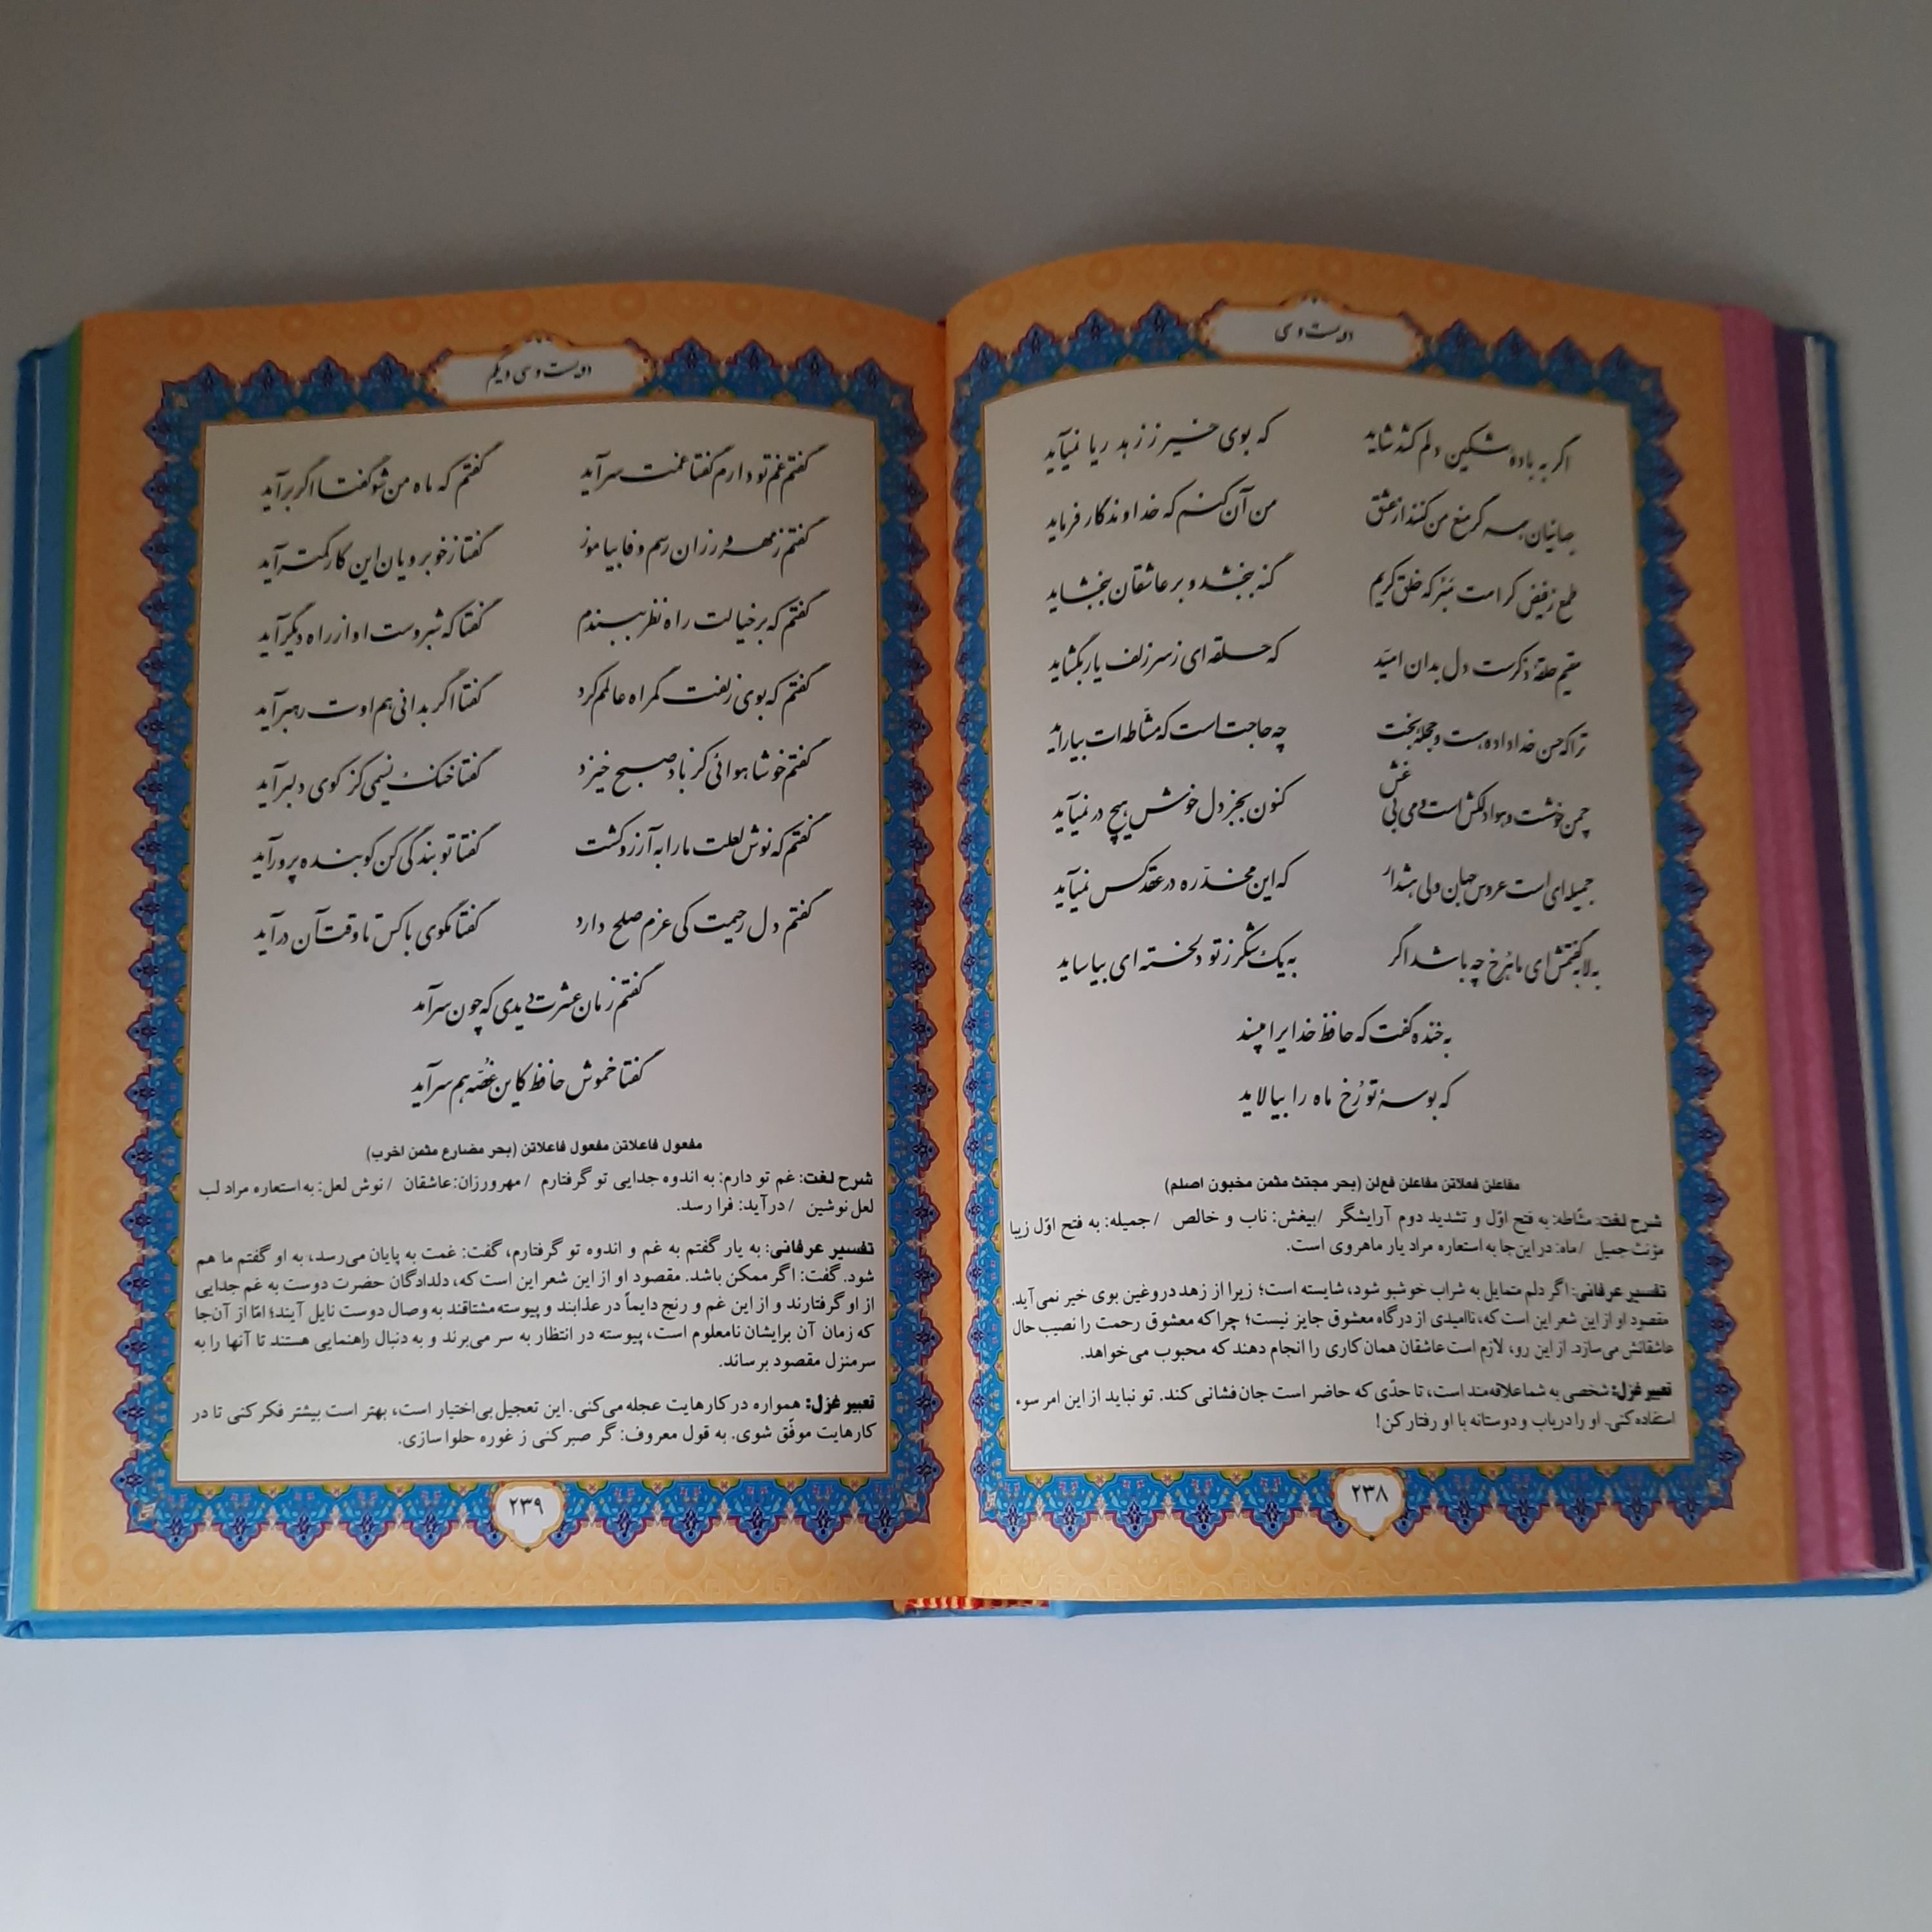 دویست و سی
اگر به باده مشکین دلم کشد شاید
که بوی خیر ز زهد ریا نمیآید
جهانیان همه گر منع من کنند از عشق
من آن کنم که خداوندگار فرماید
طمع ز فیض کرامت مبر که خلق کریم
گنه ببخشد و بر عاشقان ببخشاید
مقیم حلقهٔ ذکرست دل بدان امید
که حلقه‌ای ز سر زلف یار بگشاید
ترا که حسن خداداده هست و حجلهٔ بخت
چه حاجت است که مشّاطه‌ات بیاراید
چمن خوشست و هوا دلکش است و می بی غش
کنون بجز دل خوش هیچ در نمیآید
جمیله‌ای است عروس جهان ولی هشدار
که این مخدّره در عقد کس نمیآید
به لابه گفتمش ای ماهرخ چه باشد اگر
به یک شکر ز تو دلخسته‌ای بیاساید
به خنده گفت که حافظ خدایرا مپسند
که بوسهٔ تو رُخ ماه را بیالاید
مفاعلن فعلاتن مفاعلن فع‌لن (بحر مجتث مثمن مخبون اصلم)
شرح لغت: مشّاطه: به فتح اوّل و تشدید دوم آرایشگر / بیغش: ناب و خالص / جمیله: به فتح اوّل زیبا
مؤنث جمیل / ماه: در این‌جا به استعاره مراد یار ماهروی است.
تفسیر عرفانی: اگر دلم متمایل به شراب خوشبو شود، شایسته است؛ زیرا از زهد دروغین بوی خیر نمی‌آید.
مقصود او از این شعر این است که، ناامیدی از درگاه معشوق جایز نیست؛ چراکه معشوق رحمت را نصیب حال
عاشقانش می‌سازد. از این رو، لازم است عاشقان همان کاری را انجام دهند که محبوب می‌خواهد.
تعبیر غزل: شخصی به شما علاقه‌مند است، تا حدّی که حاضر است جان‌فشانی کند. تو نباید از این امر سوء
استفاده کنی. او را دریاب و دوستانه با او رفتار کن!
۲۳۸
دویست و سی و یکم
گفتم غم تو دارم گفتا غمت سرآید
گفتم که ماه من شو گفتا اگر برآید
گفتم ز مهرورزان رسم وفا بیاموز
گفتا ز خوبرویان این کار کمتر آید
گفتم که بر خیالت راه نظر ببندم
گفتا که شبروست او از راه دیگر آید
گفتم که بوی زلفت گمراه عالمم کرد
گفتا اگر بدانی هم اوت رهبر آید
گفتم خوشا هوائی کز باد صبح خیزد
گفتا خنک نسیمی کز کوی دلبر آید
گفتم که نوش لعلت ما را به آرزو کشت
گفتا تو بندگی کن کو بنده پرور آید
گفتم دل رحیمت کی عزم صلح دارد
گفتا مگوی با کس تا وقت آن درآید
گفتم زمان عشرت دیدی که چون سرآمد
گفتا خموش حافظ کاین غُصّه هم سرآید
مفعول فاعلاتن مفعول فاعلاتن (بحر مضارع مثمن اخرب)
شرح لغت: غم تو دارم: به اندوه جدایی تو گرفتارم / مهرورزان: عاشقان / نوش لعل: به استعاره مراد لب
لعل نوشین / درآید: فرا رسد.
تفسیر عرفانی: به یار گفتم به غم و اندوه تو گرفتارم، گفت: غمت به پایان می‌رسد، به او گفتم ما هم
شود. گفت: اگر ممکن باشد. مقصود او از این شعر این است که، دلدادگان حضرت دوست به غم جدایی
از او گرفتارند و از این غم و رنج دایماً در عذابند و پیوسته مشتاقند به وصال دوست نایل آیند؛ امّا از آن‌جا
که زمان آن برایشان نامعلوم است، پیوسته در انتظار به سر می‌برند و به دنبال راهنمایی هستند تا آنها را به
سرمنزل مقصود برساند.
تعبیر غزل: همواره در کارهایت عجله می‌کنی. این تعجیل بی‌اختیار است، بهتر است بیشتر فکر کنی تا در
کارهایت موفّق شوی. به قول معروف: گر صبر کنی ز غوره حلوا سازی.
۲۳۹